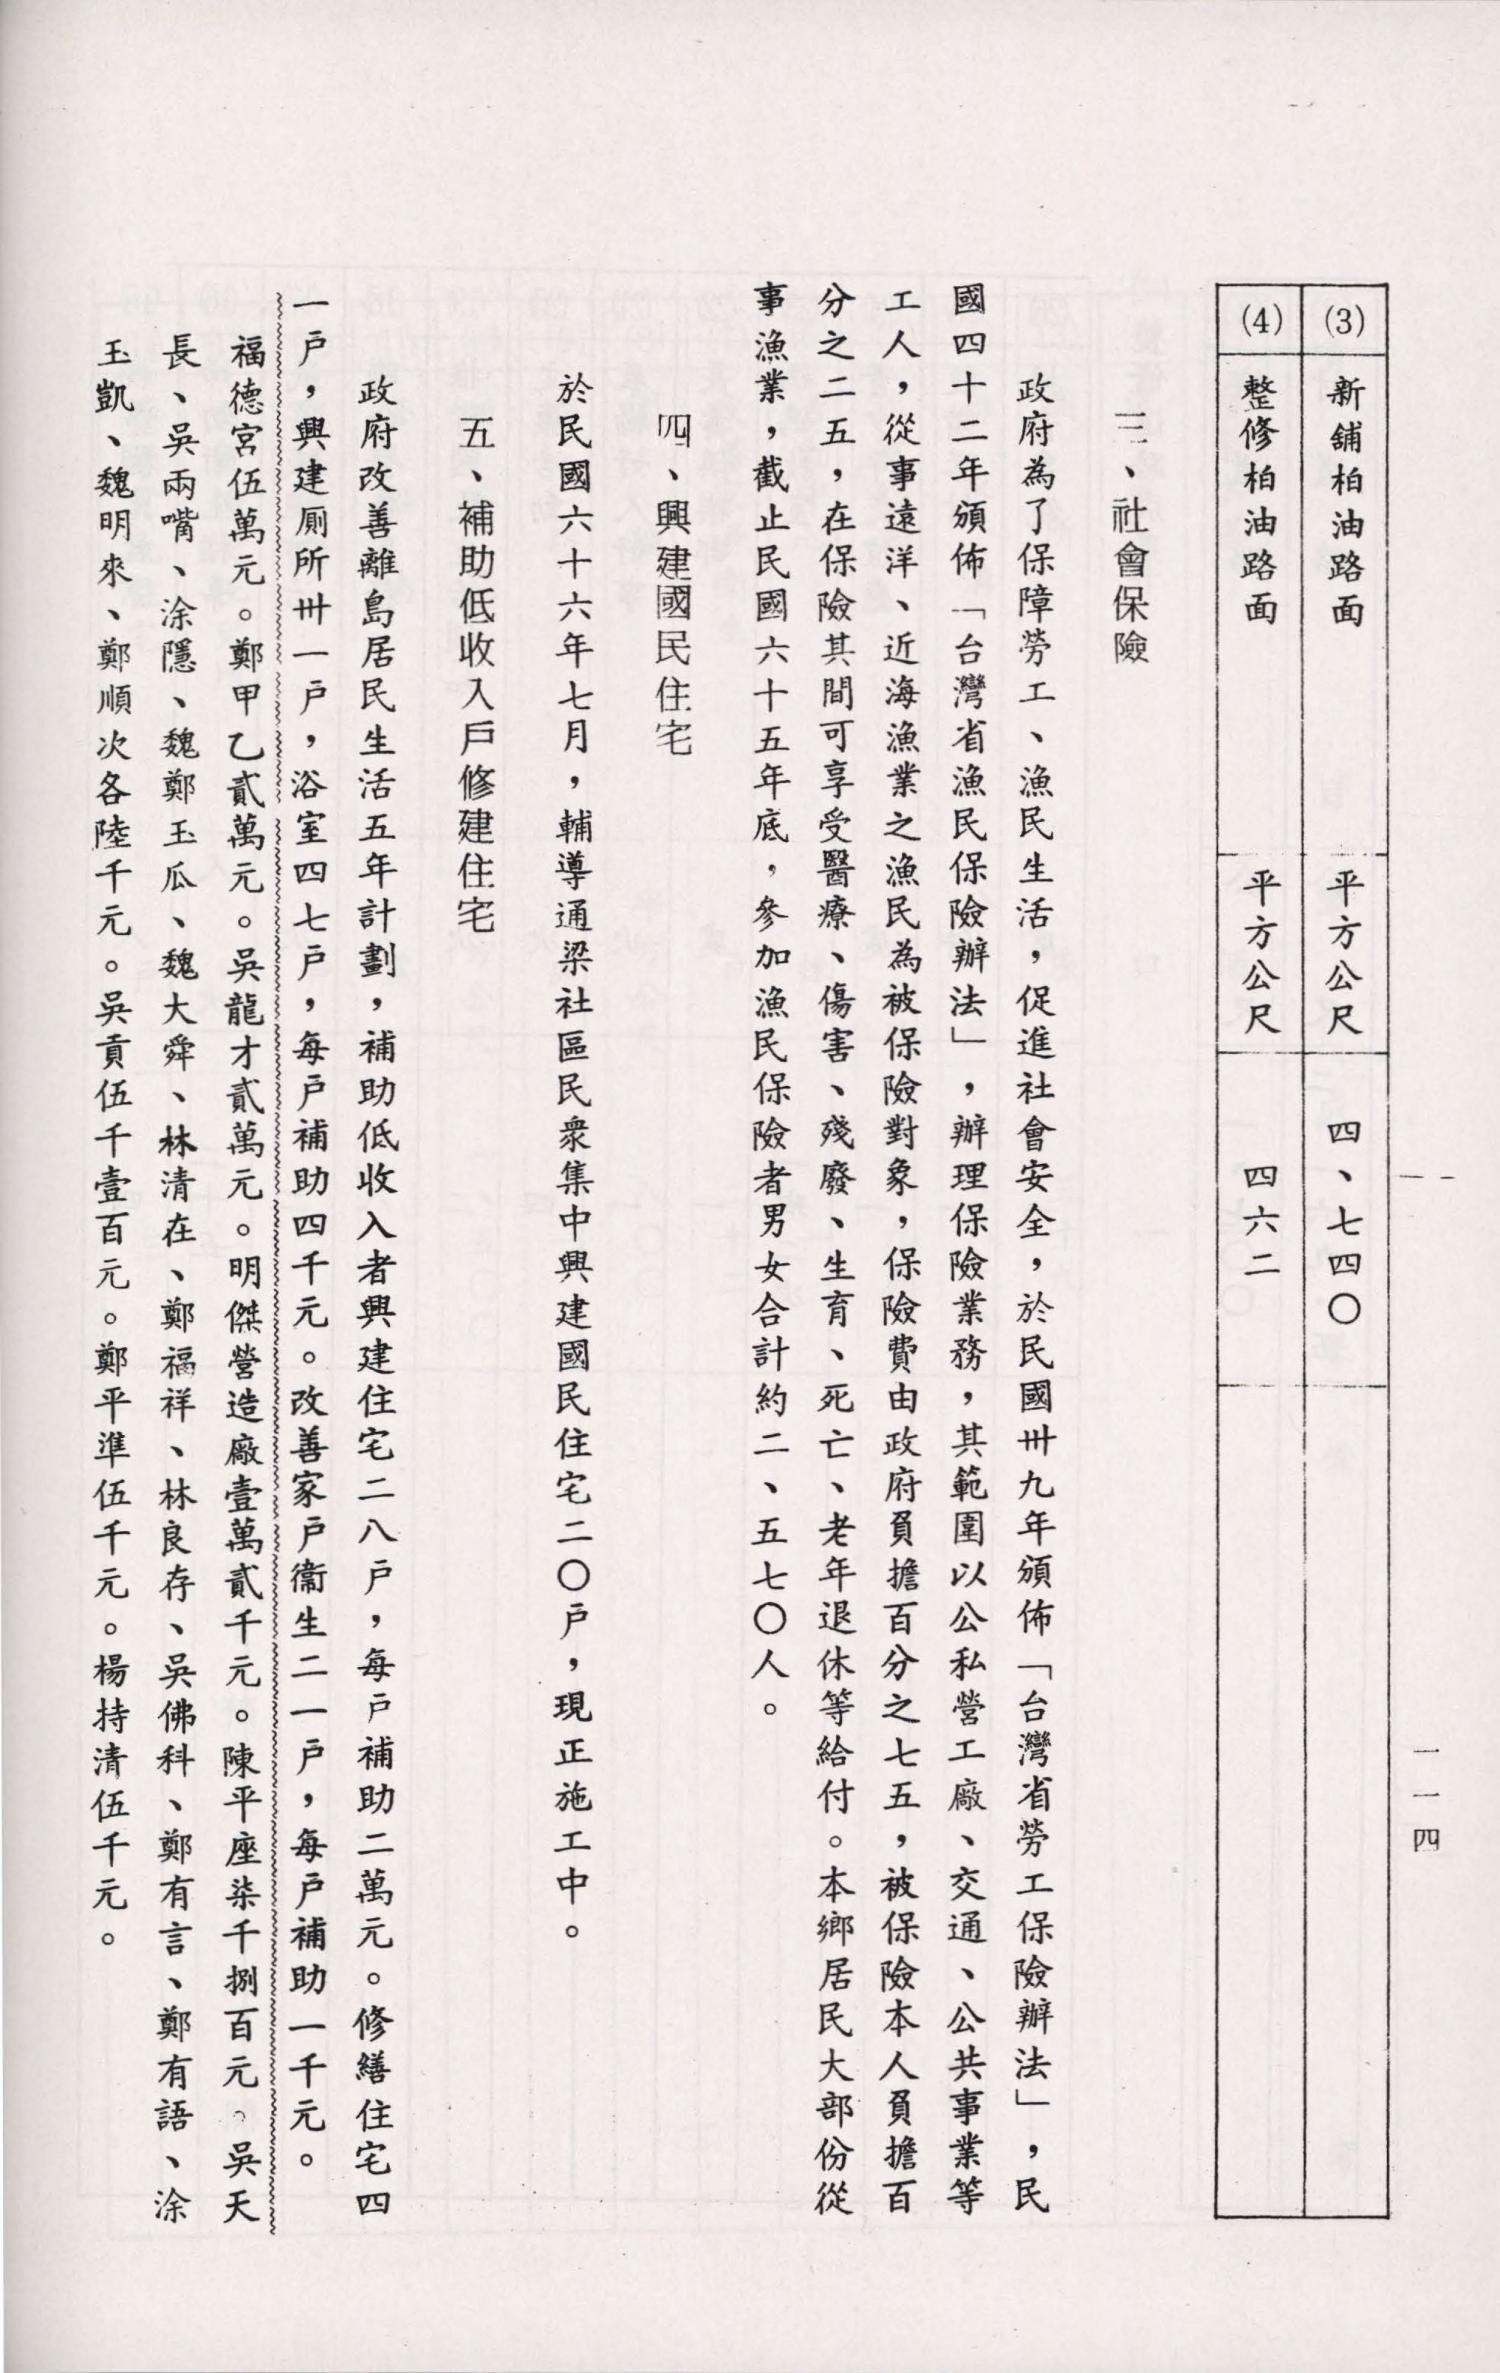 一一四
(3) 新舖柏油路面 平方公尺 四、七四〇
(4) 整修柏油路面 平方公尺 四六二
三、社會保險
政府為了保障勞工、漁民生活，促進社會安全，於民國卅九年頒佈「台灣省勞工保險辦法」，民
國四十二年頒佈「台灣省漁民保險辦法」，辦理保險業務，其範圍以公私營工廠、交通、公共事業等
工人，從事遠洋、近海漁業之漁民為被保險對象，保險費由政府負擔百分之七五，被保險本人負擔百
分之二五，在保險其間可享受醫療、傷害、殘廢、生育、死亡、老年退休等給付。本鄉居民大部份從
事漁業，截止民國六十五年底，參加漁民保險者男女合計約二、五七〇人。
四、興建國民住宅
於民國六十六年七月，輔導通梁社區民衆集中興建國民住宅二〇戶，現正施工中。
五、補助低收入戶修建住宅
政府改善離島居民生活五年計劃，補助低收入者興建住宅二八戶，每戶補助二萬元。修繕住宅四
一戶，興建厠所卅一戶，浴室四七戶，每戶補助四千元。改善家戶衞生二一戶，每戶補助一千元。
福德宮伍萬元。鄭甲乙貳萬元。吳龍才貳萬元。明傑營造廠壹萬貳千元。陳平座柒千捌百元。吳天
長、吳兩嘴、涂隱、魏鄭玉瓜、魏大舜、林清在、鄭福祥、林良存、吳佛科、鄭有言、鄭有語、涂
玉凱、魏明來、鄭順次各陸千元。吳貢伍千壹百元。鄭平準伍千元。楊持清伍千元。